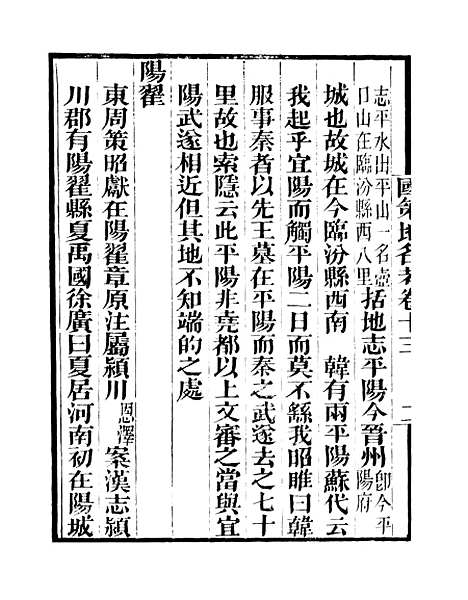 國策地名考卷十三 二
志平水出平山一名壺
口山在臨汾縣西八里
括地志平陽今晉州
卽今平
陽府
城也故城在今臨汾縣西南 韓有兩平陽蘇代云
我起乎宜陽而觸平陽二日而莫不繇我昭睢曰韓
服事秦者以先王墓在平陽而秦之武遂去之七十
里故也索隱云此平陽非堯都以上文審之當與宜
陽武遂相近但其地不知端的之處
陽翟
東周策昭獻在陽翟章原注屬潁川 恩澤 案漢志潁
川郡有陽翟縣夏禹國徐廣曰夏居河南初在陽城